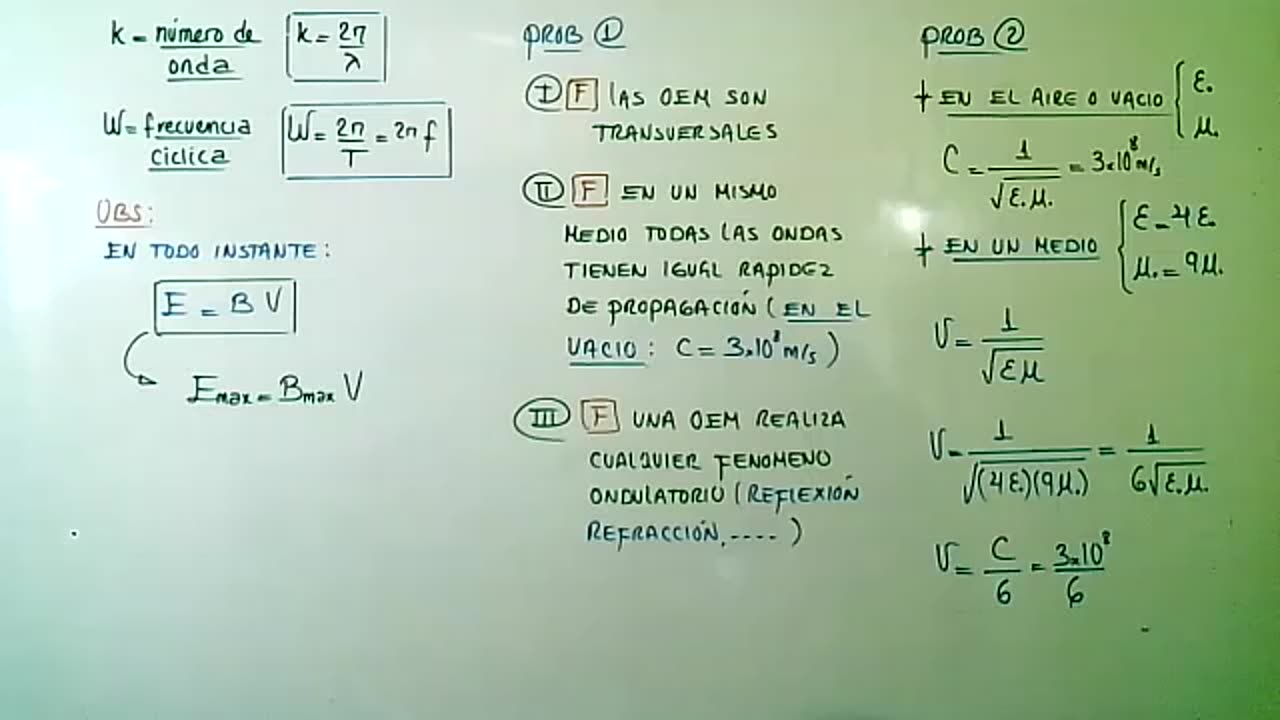 k = número de onda
k = 2π/λ
W = frecuencia ciclica
W = 2π/T = 2π f
OBS:
EN TODO INSTANTE:
E = B V
Emax = Bmax V
PROB ①
Ⓘ F LAS OEM SON
TRANSVERSALES
Ⅱ F EN UN MISMO
MEDIO TODAS LAS ONDAS
TIENEN IGUAL RAPIDEZ
DE PROPAGACIÓN (EN EL
VACIO: C = 3x10⁸ m/s)
Ⅲ F UNA OEM REALIZA
CUALQUIER FENOMENO
ONDULATORIO (REFLEXIÓN
REFRACCIÓN, ....)
PROB ②
+ EN EL AIRE O VACIO { ε₀
μ₀
C = 1/√ε₀μ₀ = 3x10⁸ m/s
+ EN UN MEDIO { ε = 4ε₀
μ₀ = 9μ₀
V = 1/√εμ
V = 1/√(4ε₀)(9μ₀) = 1/6√ε₀μ₀
V = C/6 = 3x10⁸/6